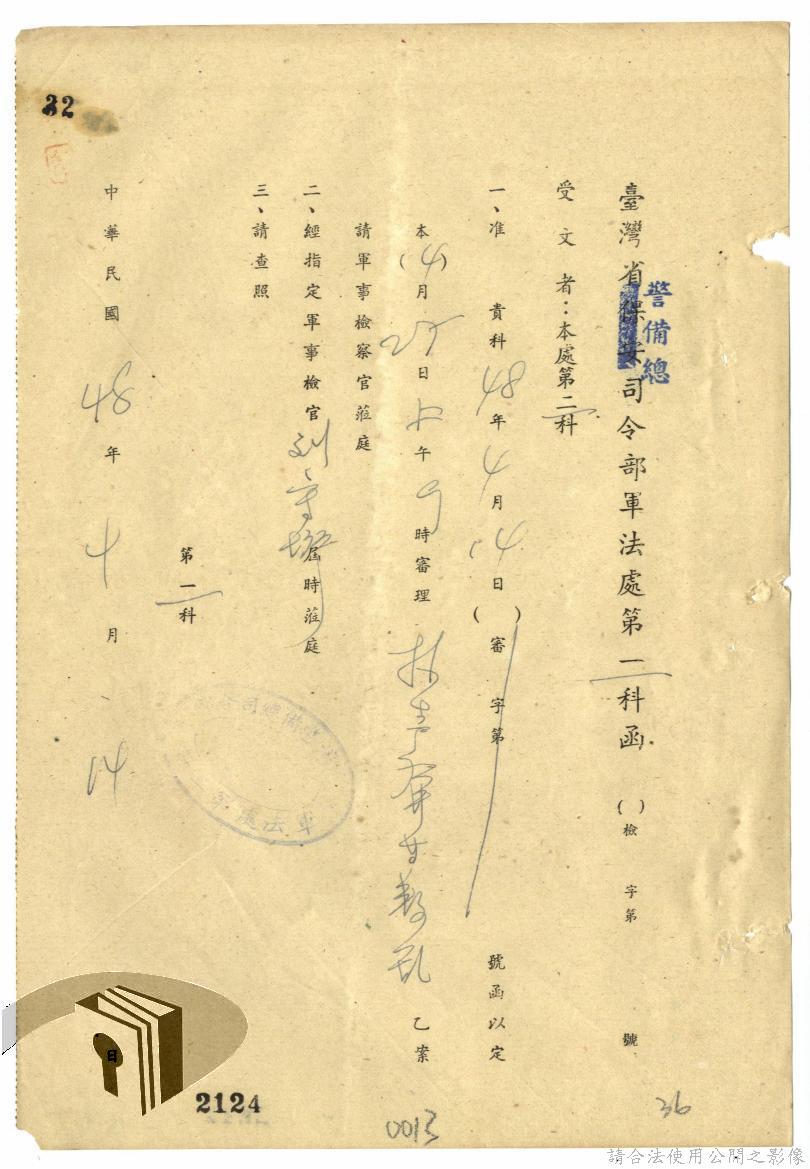 32
臺灣省保安司令部軍法處第一科函 ( )檢 字第 號
警備總
受文者:本處第二科
一、准 貴科48年4月14日( )審 字第 號函以定
本(4)月25日上午9時審理 叛亂乙案
請軍事檢察官蒞庭
二、經指定軍事檢官 屆時蒞庭
三、請查照
第一科
中華民國48年4月14
軍法處
2124
0013
36
請合法使用公開之影像